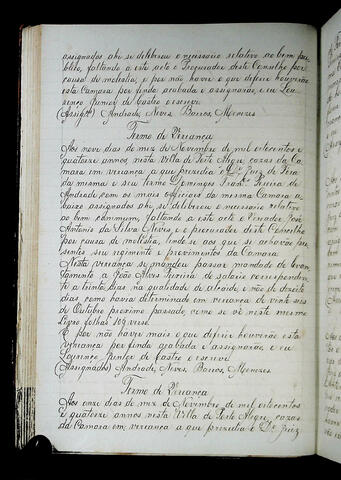 assignados ahi se deliberou o necessario relativo ao bem pu-
blico, faltando a este acto o Procurador deste Conselho por
causa de molestia, e por não haver o que deferir houverão
esta Camara por finda acabada e assignarão, e eu Lou-
renço Junior de Castro escrevi
(Assigdos) Andrade, Neves, Barros, Menezes
Termo de Vereança
Aos nove dias do mez de Novembro de mil oitocentos e
quatorze annos nesta Villa de Porto Alegre, cazas da Ca-
mara em vereança a que prezidio o Dr. Juiz de Fora
da mesma e seu Termo Domingos Franco Pereira de
Andrade com os mais officiaes da mesma Camara a
baixo assignados ahi se deliberou o necessario relativo
ao bem commum, faltando a este acto o Vereador José
Antonio da Silva Neves e o procurador deste Conselho
por causa de molestia, lindo se aos que se achavão pre-
sentes seu regimento e provimentos da Camara
Nesta vereança se mandou passar mandado de levan
tamento a João Alves Ferreira de salario correspondin-
te a trinta dias na qualidade de alcaide e não de dezoito
dias como havia determinado em vereança de vinte seis
de Outubro proximo passado como se vê neste mesmo
Livro folhas 109 verso.
E por não haver mais o que deferir houverão esta
vereança por finda acabada e assignarão, e eu
Lourenço Junior de Castro escrevi
(Assignados) Andrade, Neves, Barros, Menezes
Termo de Vereança
Aos onze dias do mez de Novembro de mil oitocentos
e quatorze annos nesta Villa de Porto Alegre, cazas
da Camara em vereança a que prezidio o Dr. Juiz